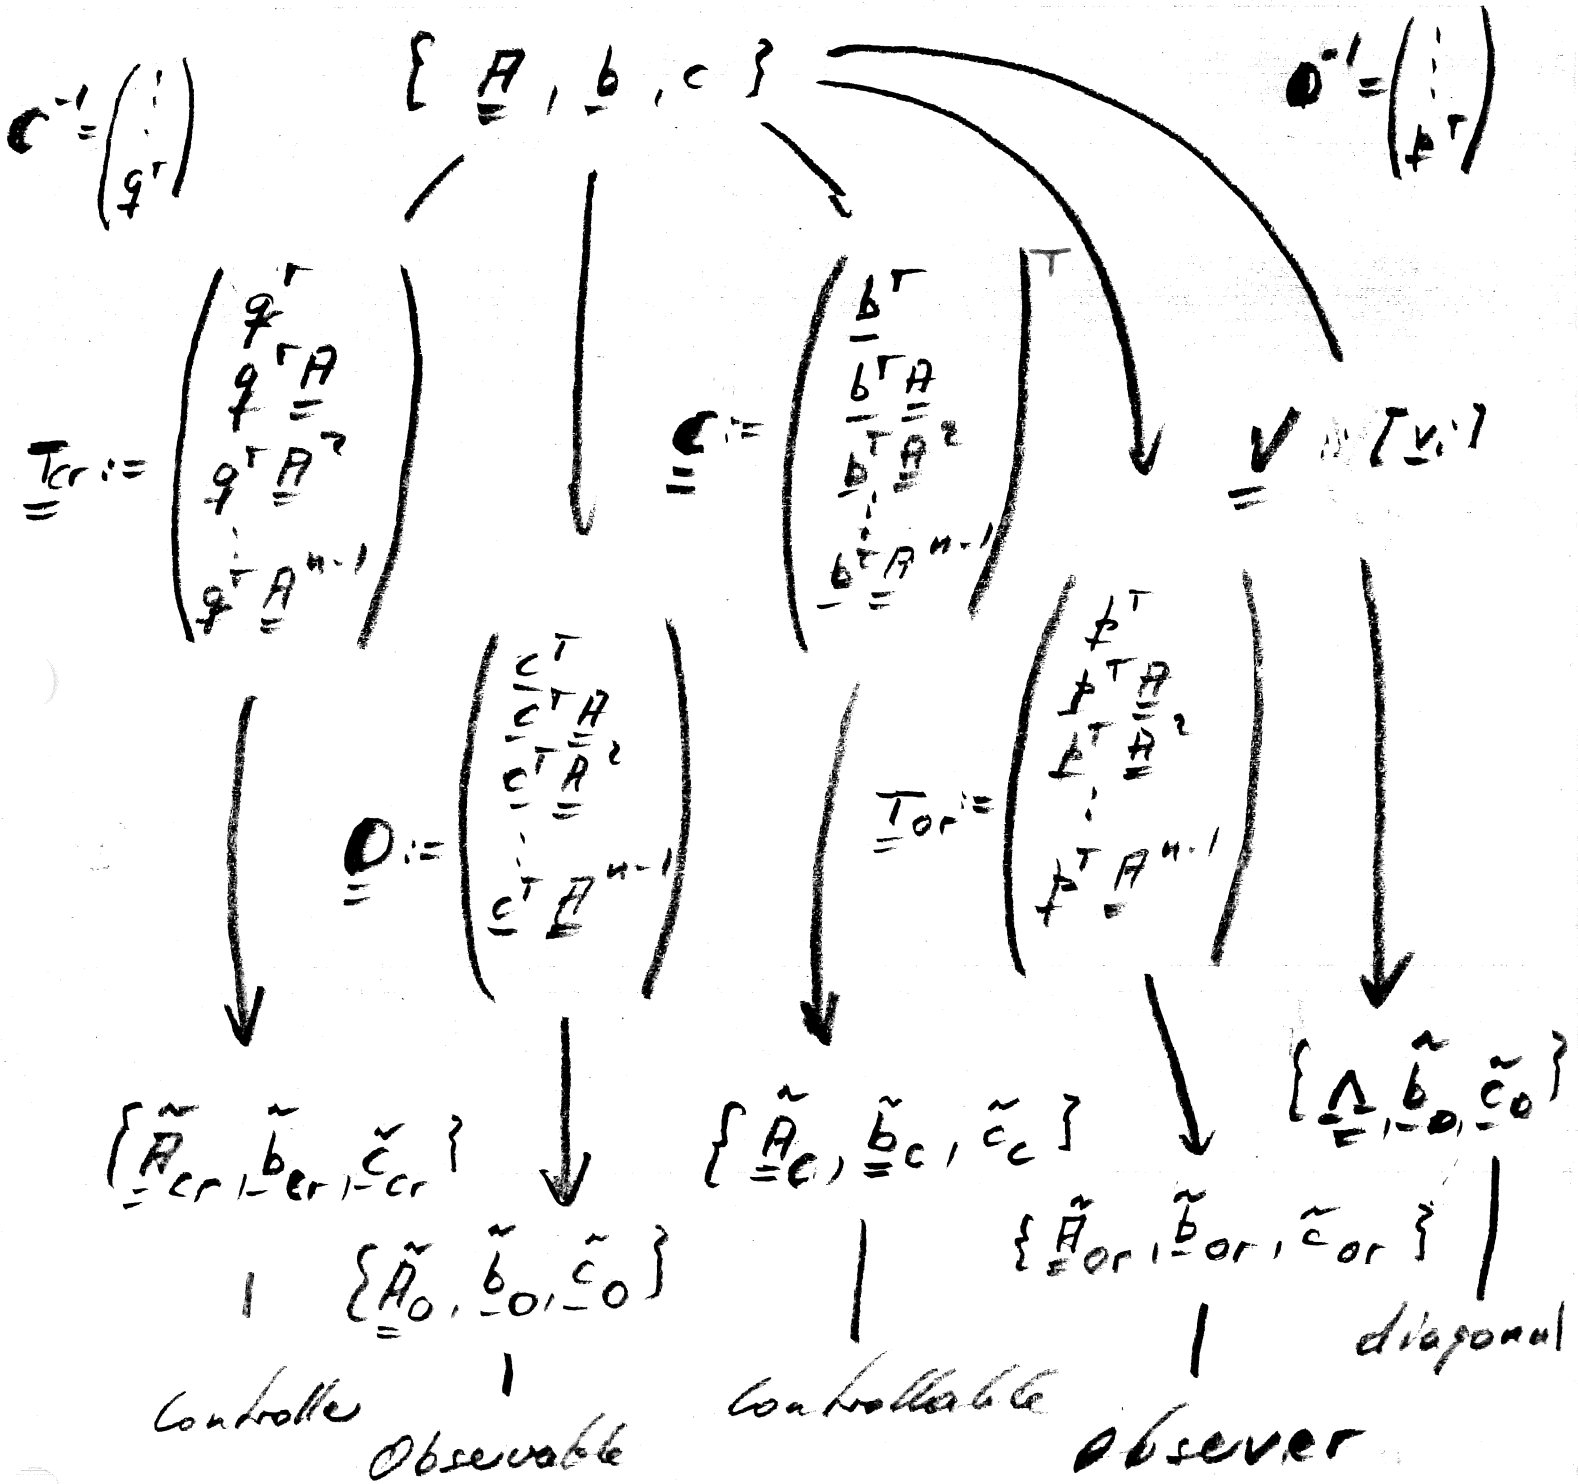 { A, b, c }
C⁻¹ = ( ⋮ qᵀ )
O⁻¹ = ( ⋮ pᵀ )
T_cr := (
qᵀ
qᵀ A
qᵀ A²
⋮
qᵀ A^{n-1}
)
C := (
bᵀ
bᵀ A
bᵀ A²
⋮
bᵀ A^{n-1}
)ᵀ
V := [v_i]
O := (
cᵀ
cᵀ A
cᵀ A²
⋮
cᵀ A^{n-1}
)
T_or := (
pᵀ
pᵀ A
pᵀ A²
⋮
pᵀ A^{n-1}
)
{ Ã_cr, b̃_cr, c̃_cr }
{ Ã_o, b̃_o, c̃_o }
{ Ã_c, b̃_c, c̃_c }
{ Ã_or, b̃_or, c̃_or }
{ Λ, b̃_D, c̃_D }
Controller
Observable
Controllable
Observer
diagonal